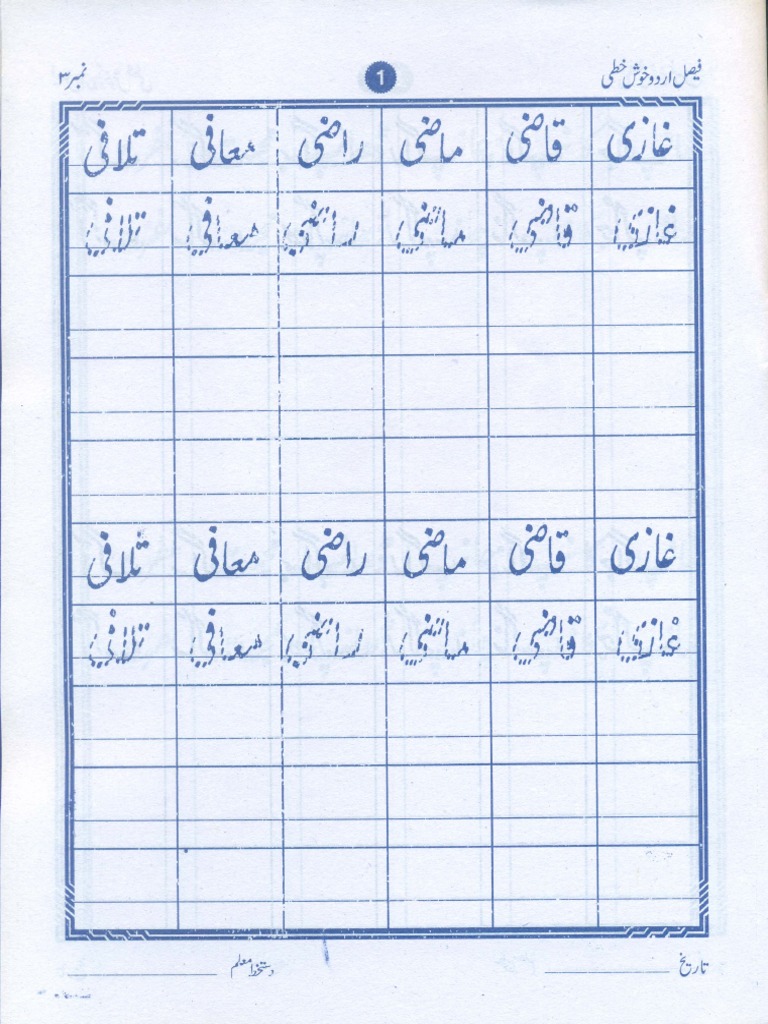 فیصل اردو خوش خطی 1 نمبر ۳
غازی قاضی ماضی راضی معافی تلافی
غازی قاضی ماضی راضی معافی تلافی
غازی قاضی ماضی راضی معافی تلافی
غازی قاضی ماضی راضی معافی تلافی
تاریخ دستخط معلم